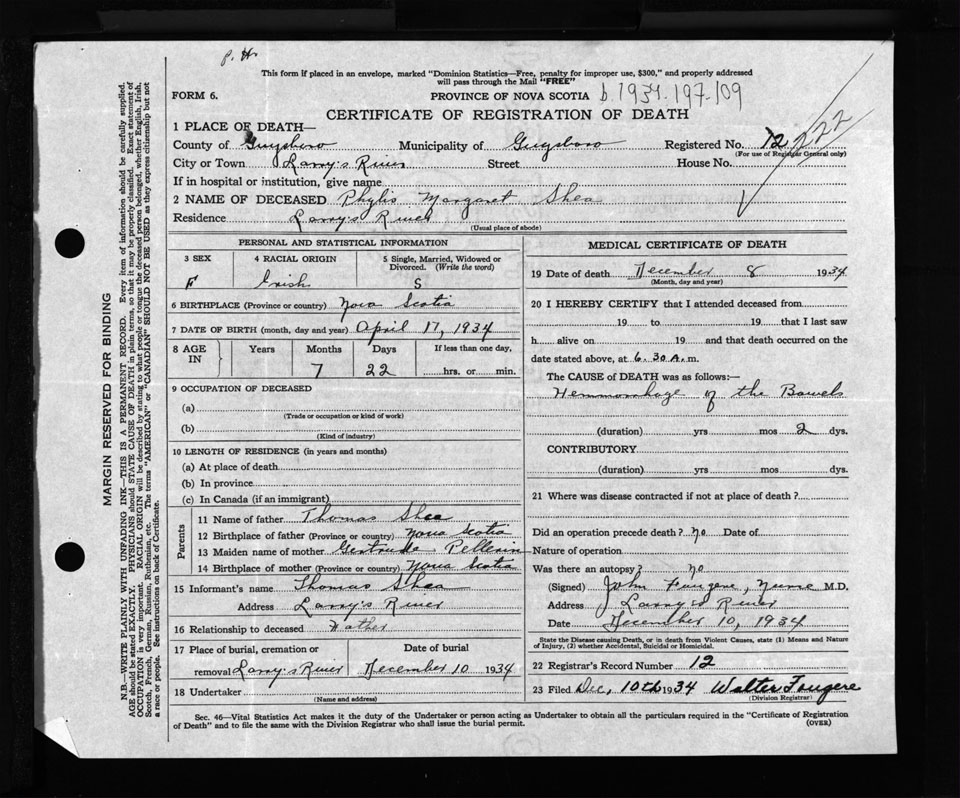 P. H.
This form if placed in an envelope, marked "Dominion Statistics—Free, penalty for improper use, $300," and properly addressed
will pass through the Mail "FREE"
FORM 6.
PROVINCE OF NOVA SCOTIA
b.1934.197-109
CERTIFICATE OF REGISTRATION OF DEATH
1 PLACE OF DEATH—
County of Guysboro Municipality of Guysboro Registered No. 12 222
(For use of Registrar General only)
City or Town Larry's River Street House No.
If in hospital or institution, give name
2 NAME OF DECEASED Phylis Margaret Shea
Residence Larry's River
(Usual place of abode)
PERSONAL AND STATISTICAL INFORMATION
3 SEX 4 RACIAL ORIGIN 5 Single, Married, Widowed or
Divorced. (Write the word)
F Irish S
6 BIRTHPLACE (Province or country) Nova Scotia
7 DATE OF BIRTH (month, day and year) April 17, 1934
8 AGE
IN
Years Months Days If less than one day,
7 22 hrs. or min.
9 OCCUPATION OF DECEASED
(a)
(Trade or occupation or kind of work)
(b)
(Kind of industry)
10 LENGTH OF RESIDENCE (in years and months)
(a) At place of death
(b) In province
(c) In Canada (if an immigrant)
Parents
11 Name of father Thomas Shea
12 Birthplace of father (Province or country) Nova Scotia
13 Maiden name of mother Gertrude Pellerin
14 Birthplace of mother (Province or country) Nova Scotia
15 Informant's name Thomas Shea
Address Larry's River
16 Relationship to deceased Father
17 Place of burial, cremation or Date of burial
removal Larry's River December 10 1934
18 Undertaker
(Name and address)
MEDICAL CERTIFICATE OF DEATH
19 Date of death December 8 1934
(Month, day and year)
20 I HEREBY CERTIFY that I attended deceased from
19 to 19 that I last saw
h alive on 19 and that death occurred on the
date stated above, at 6.30 A. m.
The CAUSE of DEATH was as follows:—
Hemmorrhage of the Bowels
(duration) yrs mos 2 dys.
CONTRIBUTORY
(duration) yrs. mos. dys.
21 Where was disease contracted if not at place of death?
Did an operation precede death? No Date of
Nature of operation
Was there an autopsy? no
(Signed) John Faugere, Nurse M.D.
Address Larry's River
Date December 10, 1934
State the Disease causing Death, or in death from Violent Causes, state (1) Means and Nature
of Injury, (2) whether Accidental, Suicidal or Homicidal.
22 Registrar's Record Number 12
23 Filed Dec, 10th 1934 Walter Fougere
(Division Registrar)
Sec. 46—Vital Statistics Act makes it the duty of the Undertaker or person acting as Undertaker to obtain all the particulars required in the "Certificate of Registration
of Death" and to file the same with the Division Registrar who shall issue the burial permit.
(OVER)
MARGIN RESERVED FOR BINDING
N.B.—WRITE PLAINLY WITH UNFADING INK—THIS IS A PERMANENT RECORD. Every item of information should be carefully supplied.
AGE should be stated EXACTLY. PHYSICIANS should STATE CAUSE OF DEATH in plain terms, so that it may be properly classified. Exact statement of
OCCUPATION is very important. RACIAL ORIGIN will be described by stating to what people or tongue the deceased person belonged, whether English, Irish,
Scotch, French, German, Russian, Ruthenian, etc. The terms "AMERICAN" or "CANADIAN" SHOULD NOT BE USED as they express citizenship but not
a race or people. See instructions on back of Certificate.